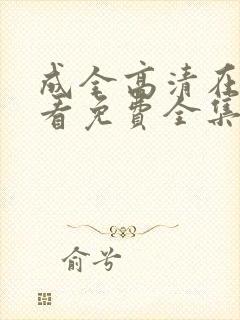 成全高清在
看免费全集
俞兮